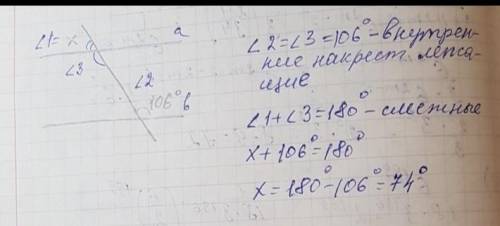 ∠1=x
a
∠3
∠2
106° b
∠2=∠3=106° – внутрен-
ние накрест. лежа-
щие
∠1+∠3=180° – смежные
x+106°=180°
x=180°-106°=74°